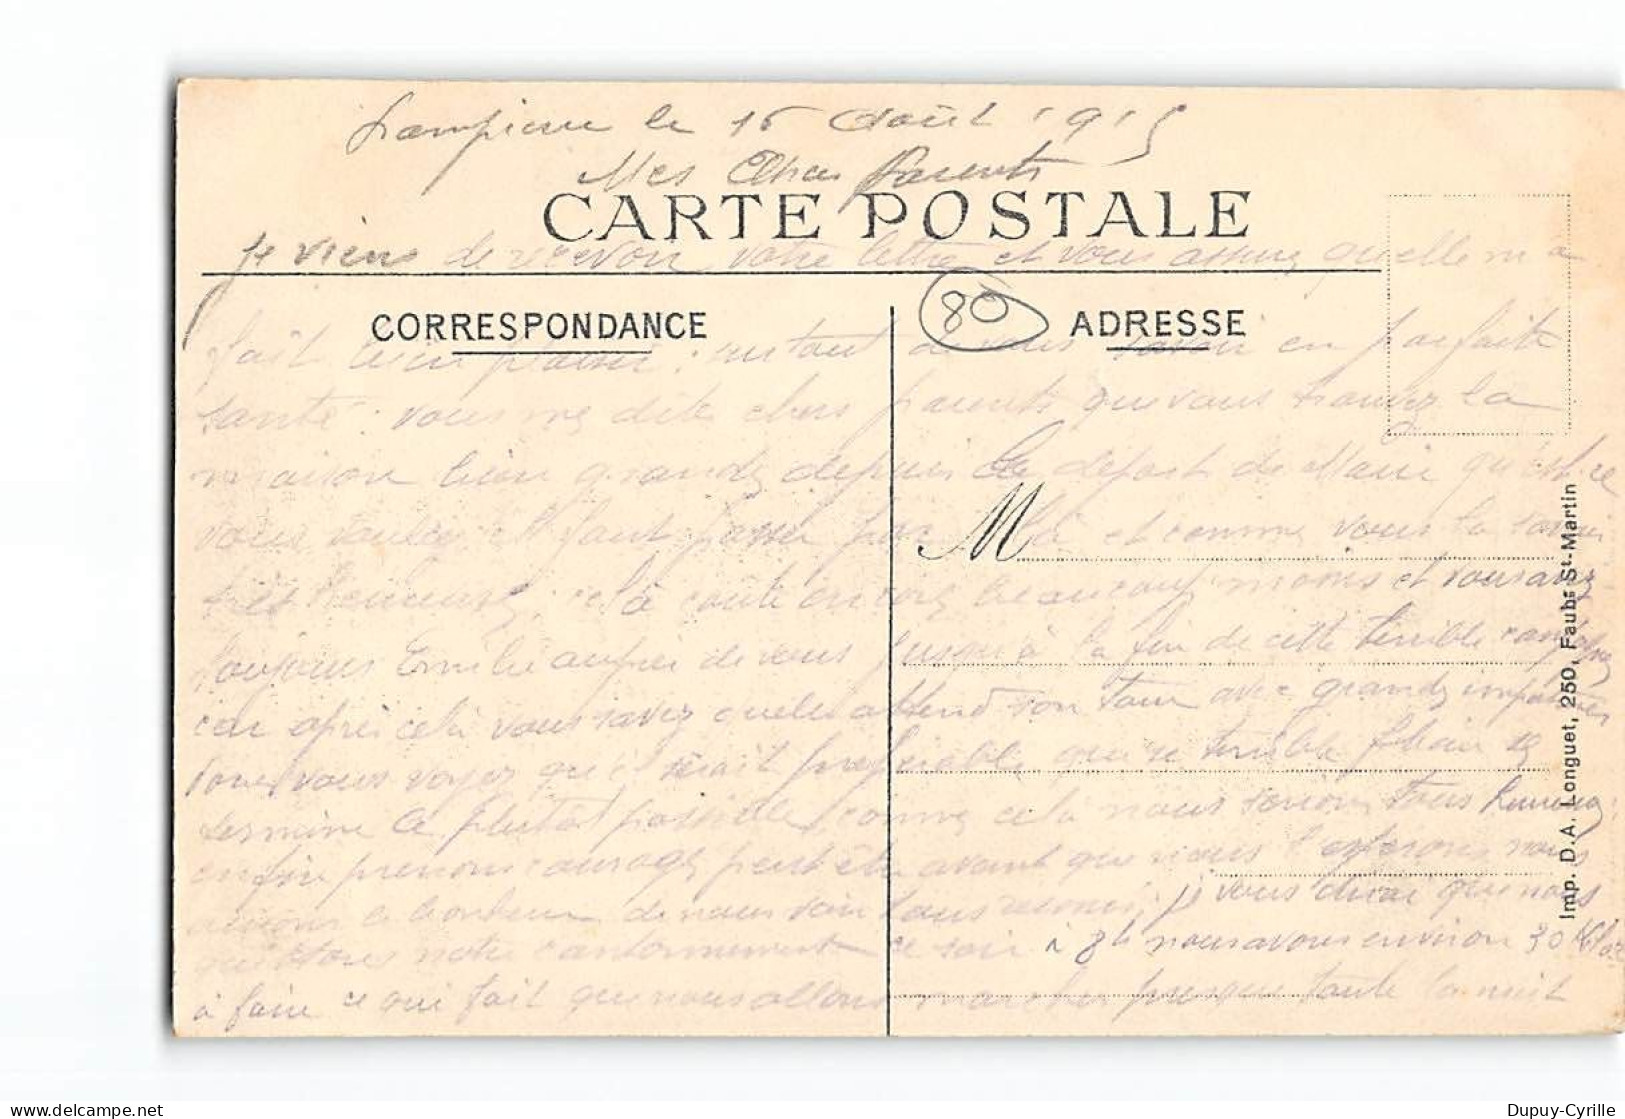 le 16 Août 1915
Mes Chers Parents
CARTE POSTALE
Je viens de recevoir votre lettre et vous assure quelle m'a
80
CORRESPONDANCE
ADRESSE
fait bien plaisir; surtout de vous savoir en parfaite
santé: vous me dite chers parents que vous trouvez la
maison bien grande depuis le depart de Marie qu'est ce
vous voulez il faut passer par là et comme vous la savez
très heureuse, cela coute encore beaucoup moins et vous avez
toujours Emilie auprès de vous jusqu'à la fin de cette terrible campagne
car après cela vous savez quelle attend son tour avec grande impatience
donc vous voyez qu'il serait préférable que ce terrible fléau se
termine le plutôt possible, comme cela nous serions tous heureux:
enfin prenons courage peut être avant que nous l'esperons nous
aurons le bonheur de nous voir tous reunis; je vous dirai que nous
quittons notre cantonnement ce soir à 8h nous avons environ 30 Kilo
à faire ce qui fait que nous allons marcher presque toute la nuit
M
Imp. D.A. Longuet, 250, Faubg St-Martin
Dupuy-Cyrille